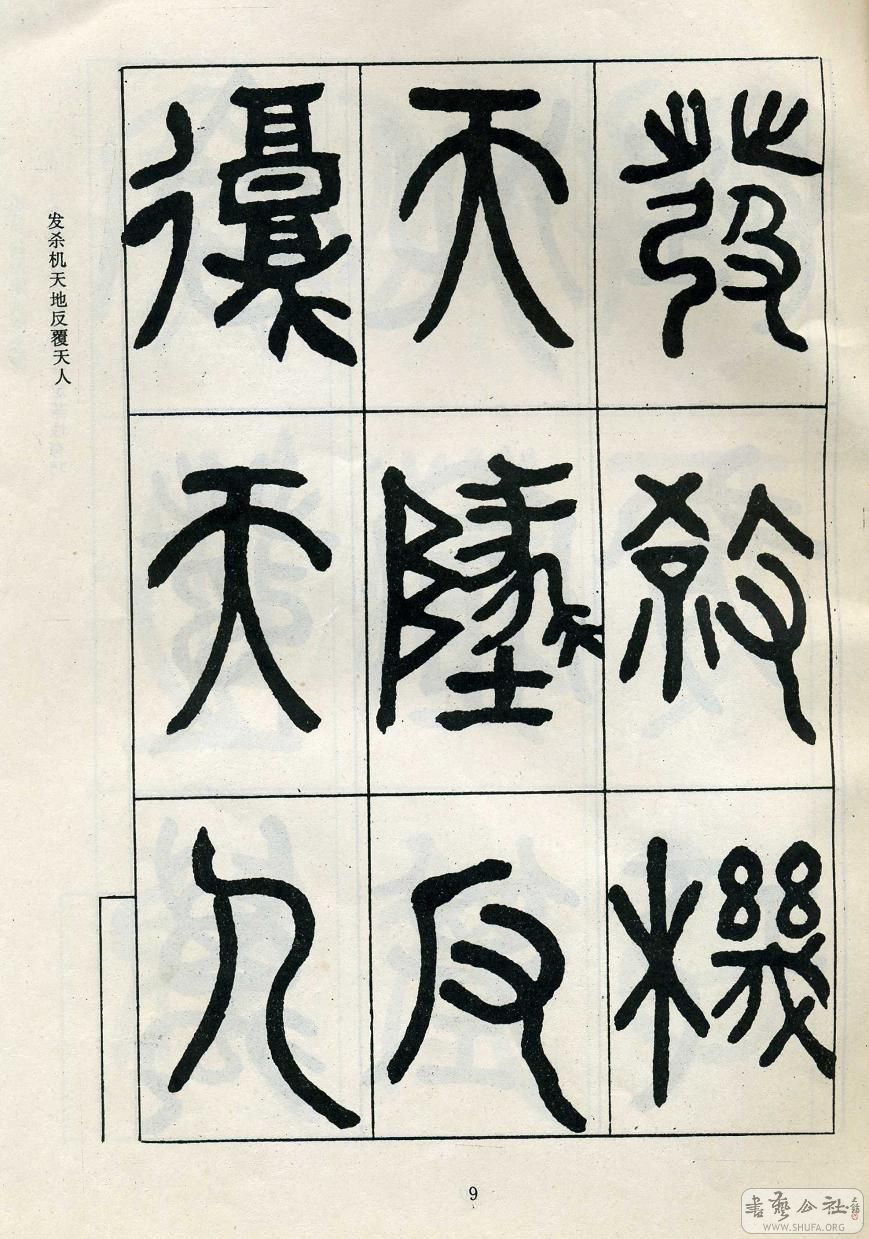 發殺機
天地反
覆天人
发杀机天地反覆天人
9
書藝公社
WWW.SHUFA.ORG